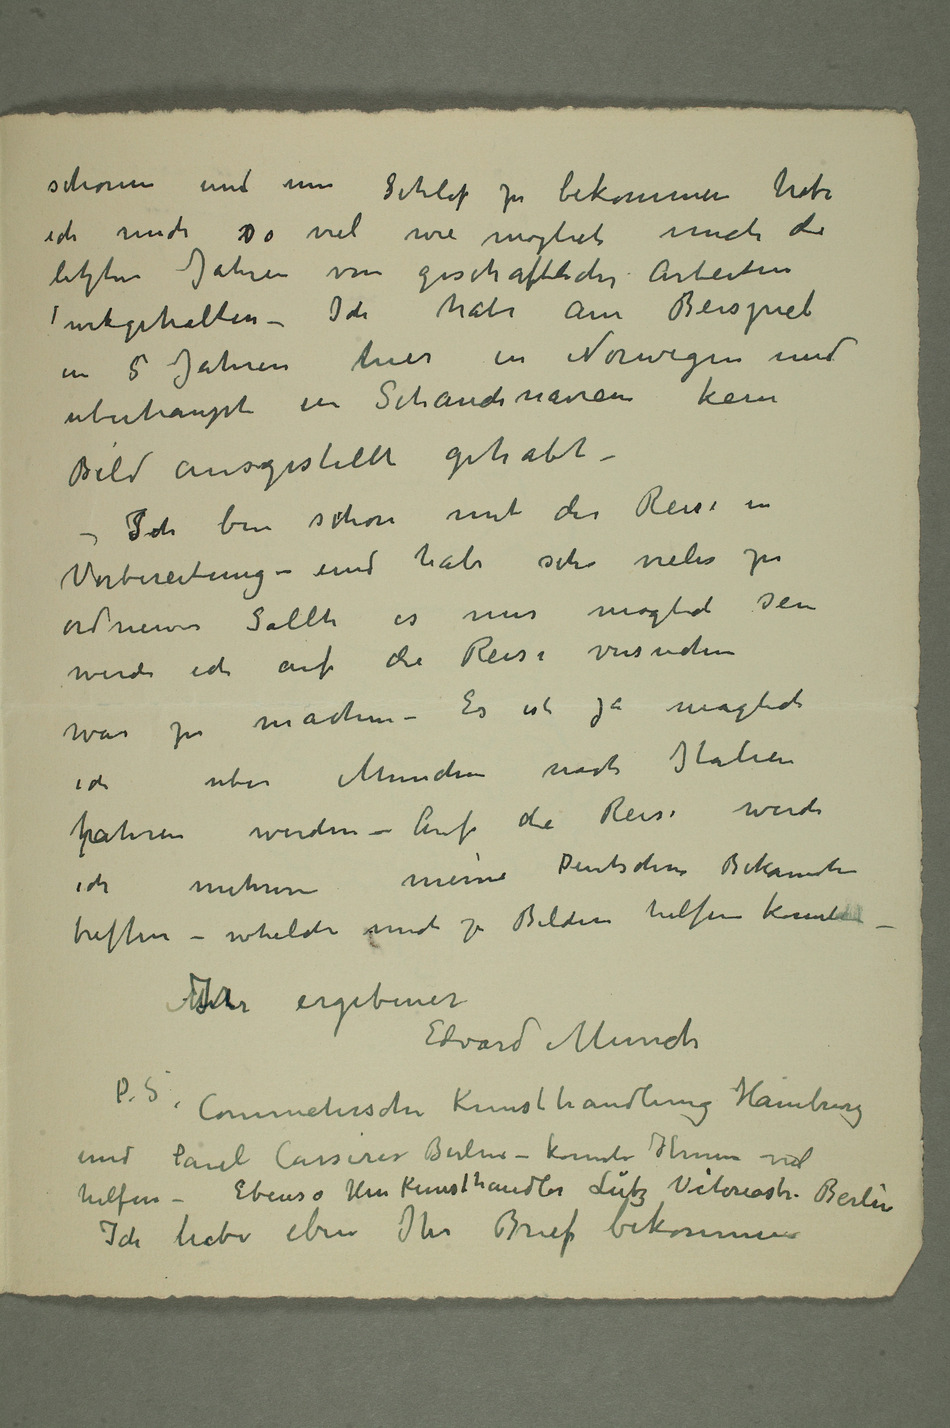 schonen und um Schlaf zu bekommen habe
ich mich so viel wie moglich mich die
letzten Jahren von geschaftlicher Arbeiten
zurükgehalten – Ich habe am Beispiel
in 5 Jahren hier in Norwegen und
uberhaupt in Schandinavien kein
Bild ausgestellt gehabt –
– Ich bin schon mit der Reise in
Vorbereitung – und habe sehr vieles zu
ordnen Sollte es mir moglich sein
werde ich auf die Reise versuchen
was zu machen – Es ist ja moglich
ich uber Munchen nach Italien
fahren werden – Auf die Reise werde
ich mehrere meine Deutschen Bekannten
treffen – whelche mich zu Bilder helfen konnten –
Ihr ergebener
Edvard Munch
P.S. Commetersche Kunsthandlung Hamburg
und Paul Cassirer Berlin – konnte Ihnen viel
helfen – Ebenso Herr Kunsthandler Lutz Vitoriastr. Berlin
Ich habe eben Ihr Brief bekommen